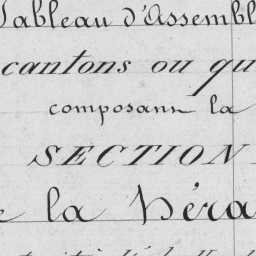 Tableau d'Assembl
cantons ou qu
composant la
SECTION
e la Déra